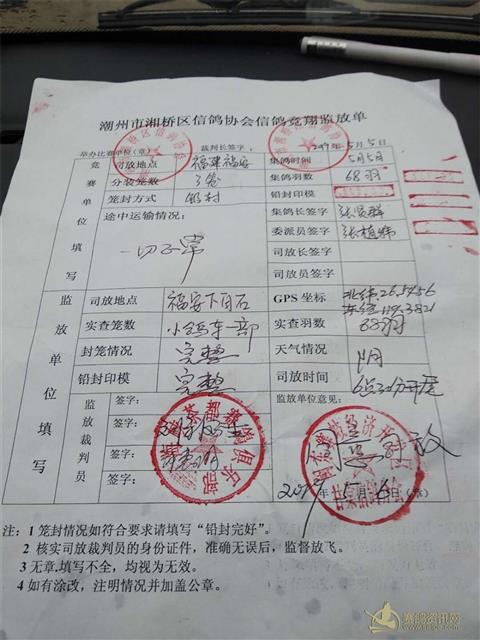 潮州市湘桥区信鸽协会信鸽竞翔监放单
举办比赛单位(章) 裁判长签字: 2019年5月5日
竞赛单位填写
司放地点 福建福安 集鸽时间 5月5日
分装笼数 3笼 集鸽羽数 68羽
笼封方式 铅封 铅封印模
途中运输情况: 集鸽长签字
一切正常 委派员签字
司放长签字
司放员签字
监放单位填写
司放地点 福安下白石 GPS坐标 北纬
东经
实查笼数 小鸽车一部 实查羽数 68羽
封笼情况 完整 天气情况 阴
铅封印模 完整 司放时间
监放裁判员 签字: 监放单位意见:
签字: 同意 放
签字:
签字: 2019年5月6日(章)
注: 1 笼封情况如符合要求请填写“铅封完好”。
2 核实司放裁判员的身份证件,准确无误后,监督放飞。
3 无章.填写不全,均视为无效。
4 如有涂改,注明情况并加盖公章。
赛鸽资讯网